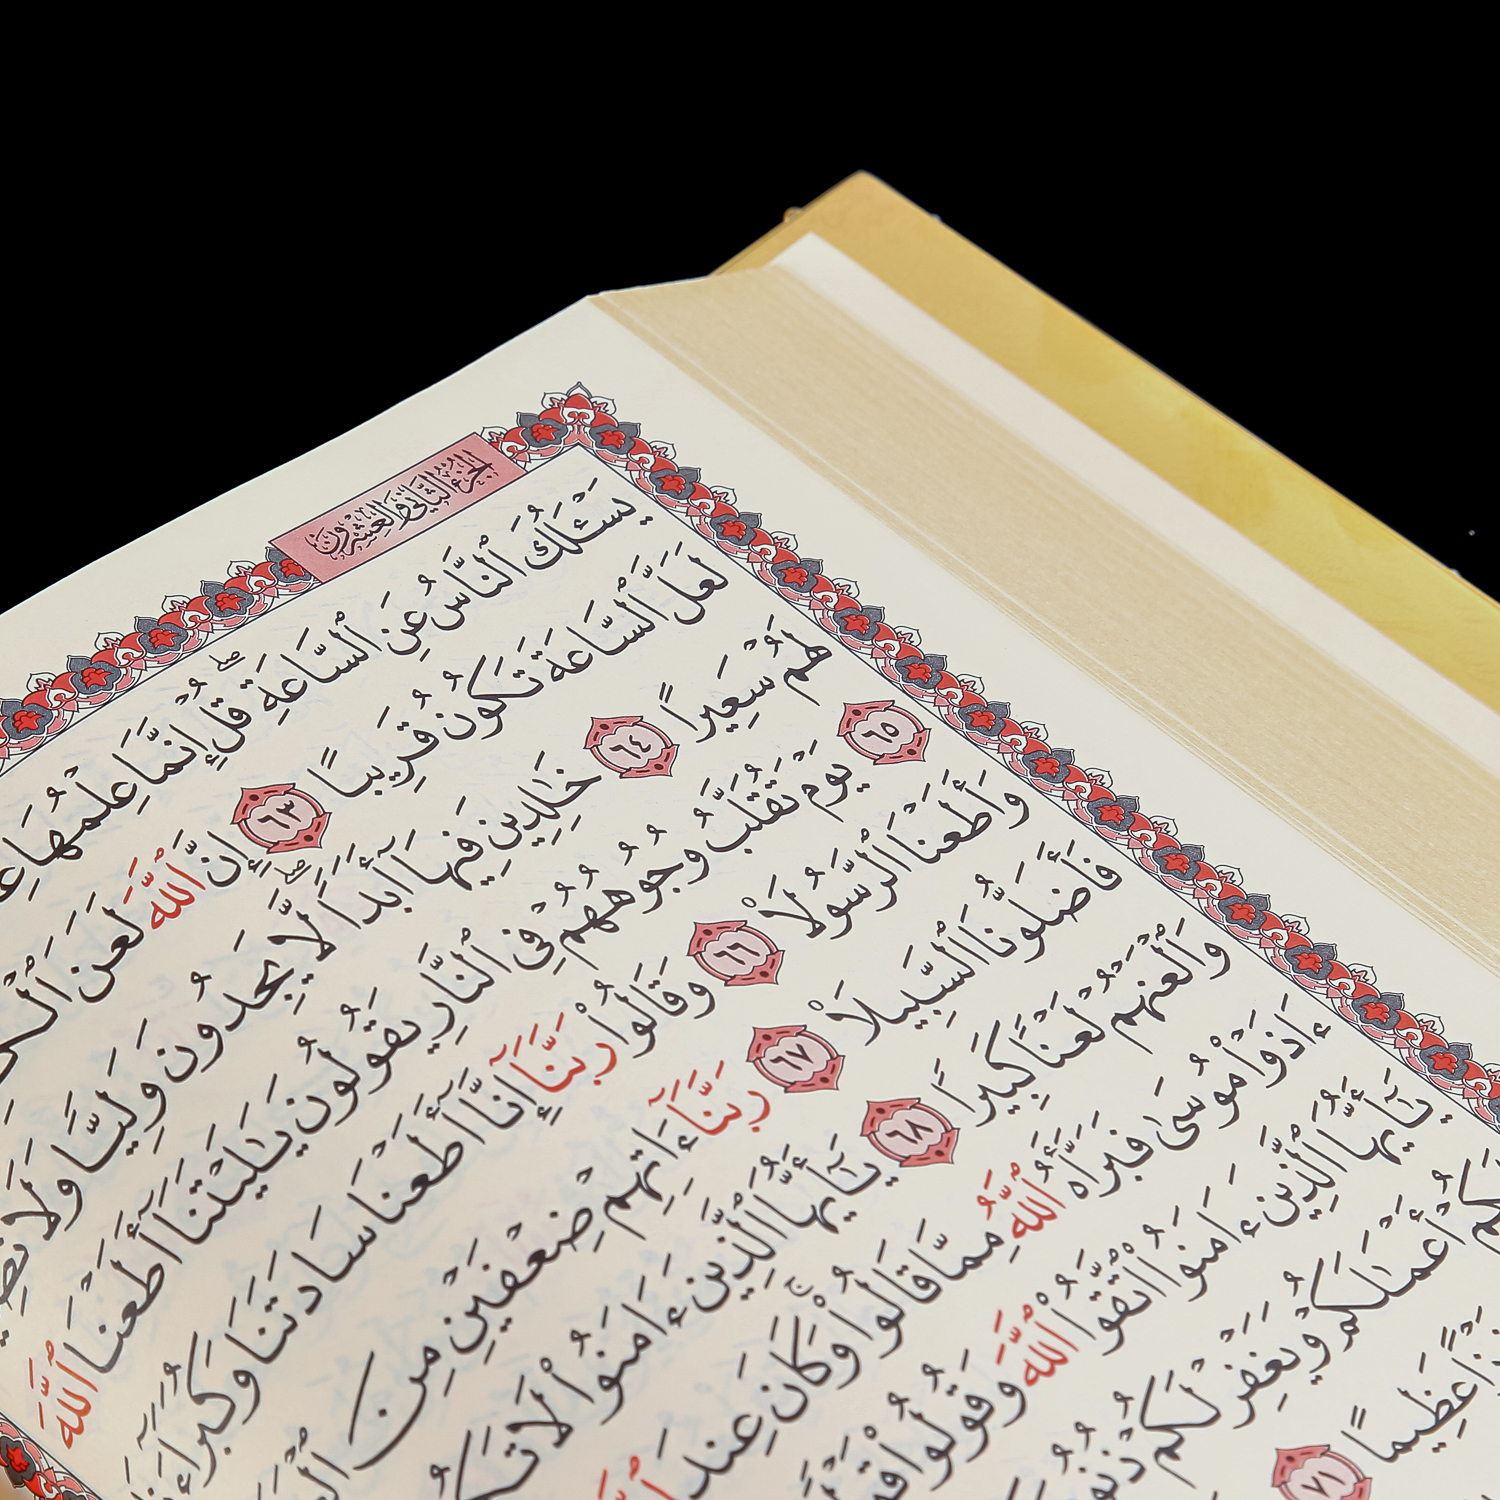 الجزء الثاني والعشرون
يَسْـَٔلُكَ ٱلنَّاسُ عَنِ ٱلسَّاعَةِ ۖ قُلْ إِنَّمَا عِلْمُهَا
لَعَلَّ ٱلسَّاعَةَ تَكُونُ قَرِيبًا ٦٣ إِنَّ ٱللَّهَ لَعَنَ
لَهُمْ سَعِيرًا ٦٤ خَٰلِدِينَ فِيهَآ أَبَدًا ۖ لَّا يَجِدُونَ وَلِيًّا وَلَا
٦٥ يَوْمَ تُقَلَّبُ وُجُوهُهُمْ فِى ٱلنَّارِ يَقُولُونَ يَٰلَيْتَنَآ أَطَعْنَا ٱللَّهَ
وَأَطَعْنَا ٱلرَّسُولَا۠ ٦٦ وَقَالُوا۟ رَبَّنَآ إِنَّآ أَطَعْنَا سَادَتَنَا وَكُبَرَآءَنَا
فَأَضَلُّونَا ٱلسَّبِيلَا۠ ٦٧ رَبَّنَآ ءَاتِهِمْ ضِعْفَيْنِ مِنَ
وَٱلْعَنْهُمْ لَعْنًا كَبِيرًا ٦٨ يَٰٓأَيُّهَا ٱلَّذِينَ ءَامَنُوا۟ لَا
ءَاذَوْا۟ مُوسَىٰ فَبَرَّأَهُ ٱللَّهُ مِمَّا قَالُوا۟ ۚ وَكَانَ عِندَ
يَٰٓأَيُّهَا ٱلَّذِينَ ءَامَنُوا۟ ٱتَّقُوا۟ ٱللَّهَ وَقُولُوا۟
لَكُمْ أَعْمَٰلَكُمْ وَيَغْفِرْ لَكُمْ
عَظِيمًا ٧١